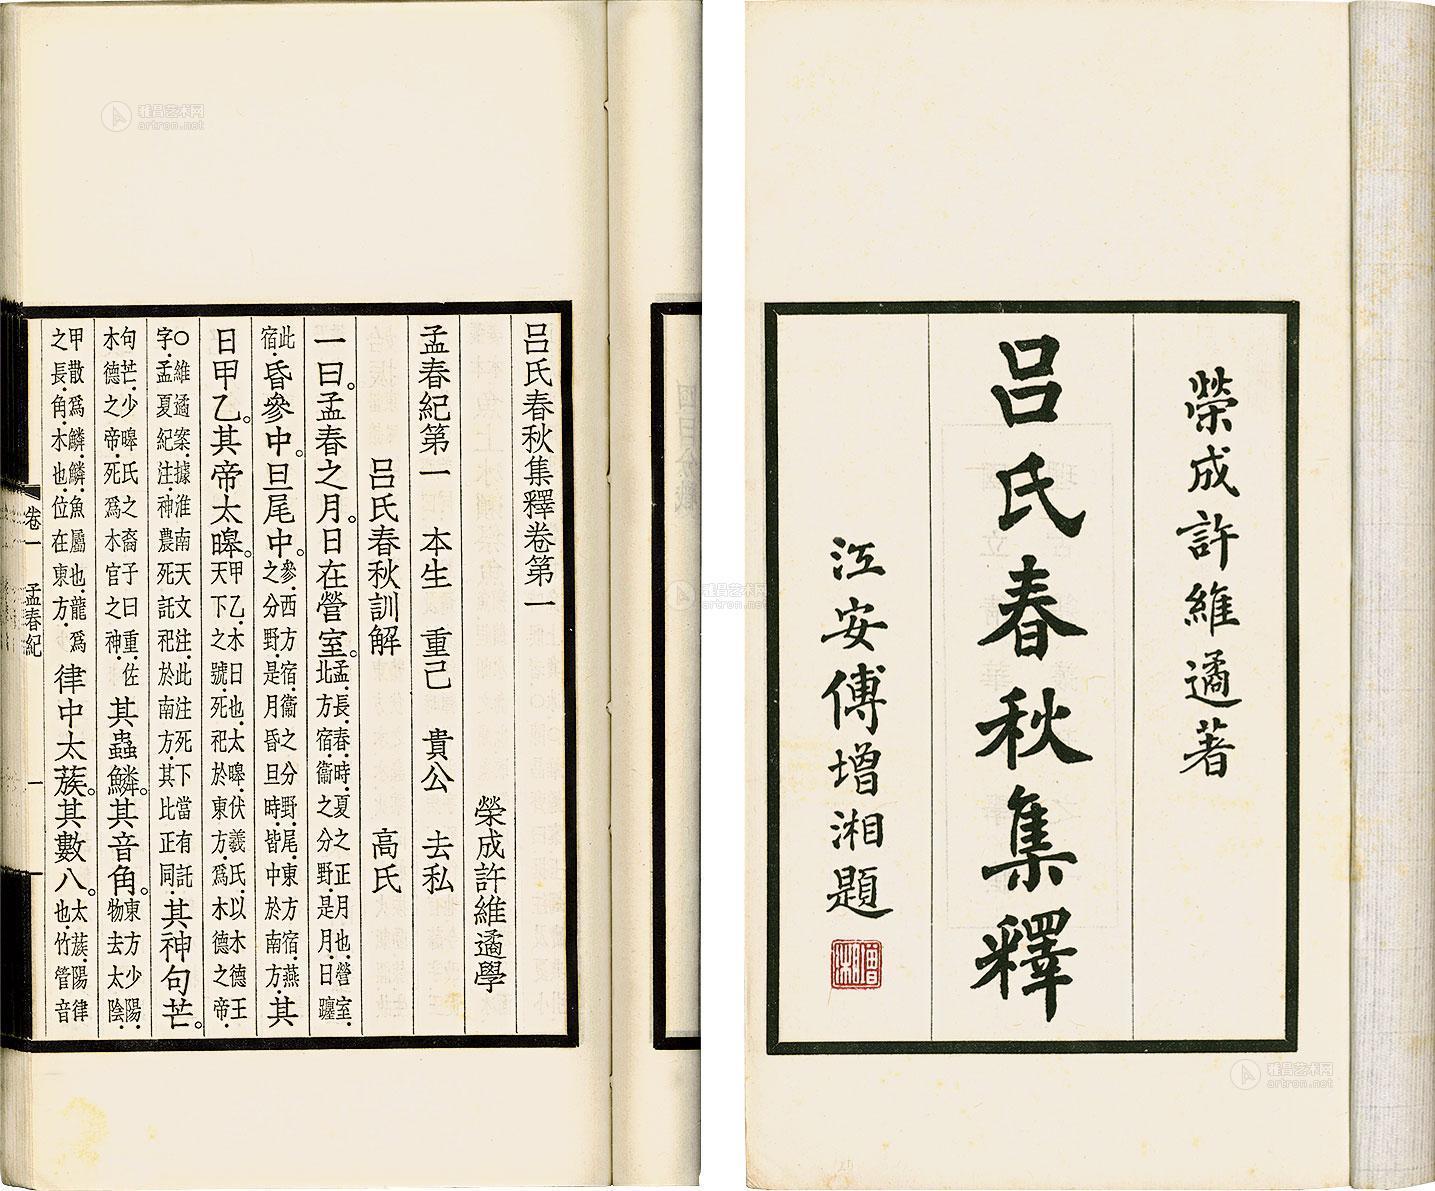 榮成許維遹著
呂氏春秋集釋
江安傅增湘題
呂氏春秋集釋卷第一
榮成許維遹學
孟春紀第一 本生 重己 貴公 去私
呂氏春秋訓解 高氏
一曰。孟春之月。日在營室。孟、長、春、時、夏之正月也、營室、北方宿、衞之分野、是月、日躔
此宿、昏參中。旦尾中。參、西方宿、衞之分野、尾、東方宿、燕之分野、是月昏旦時、皆中於南方、其
日甲乙。其帝太皞。甲乙、木日也、太皞、伏羲氏、以木德王天下之號、死祀於東方、爲木德之帝、
○維遹案、據淮南天文注、此注死下當有託字、孟夏紀注、神農死託祀於南方、其比正同、其神句芒。
句芒、少皞氏之裔子曰重、佐木德之帝、死爲木官之神、其蟲鱗。其音角。東方少陽、物去太陰、
甲散爲鱗、鱗魚屬也、龍爲之長、角、木也、位在東方、律中太蔟。其數八。太蔟、陽律也、竹管音
卷一 孟春紀
一
雅昌艺术网
artron.net
雅昌艺术网
artron.net
雅昌艺术网
artron.net